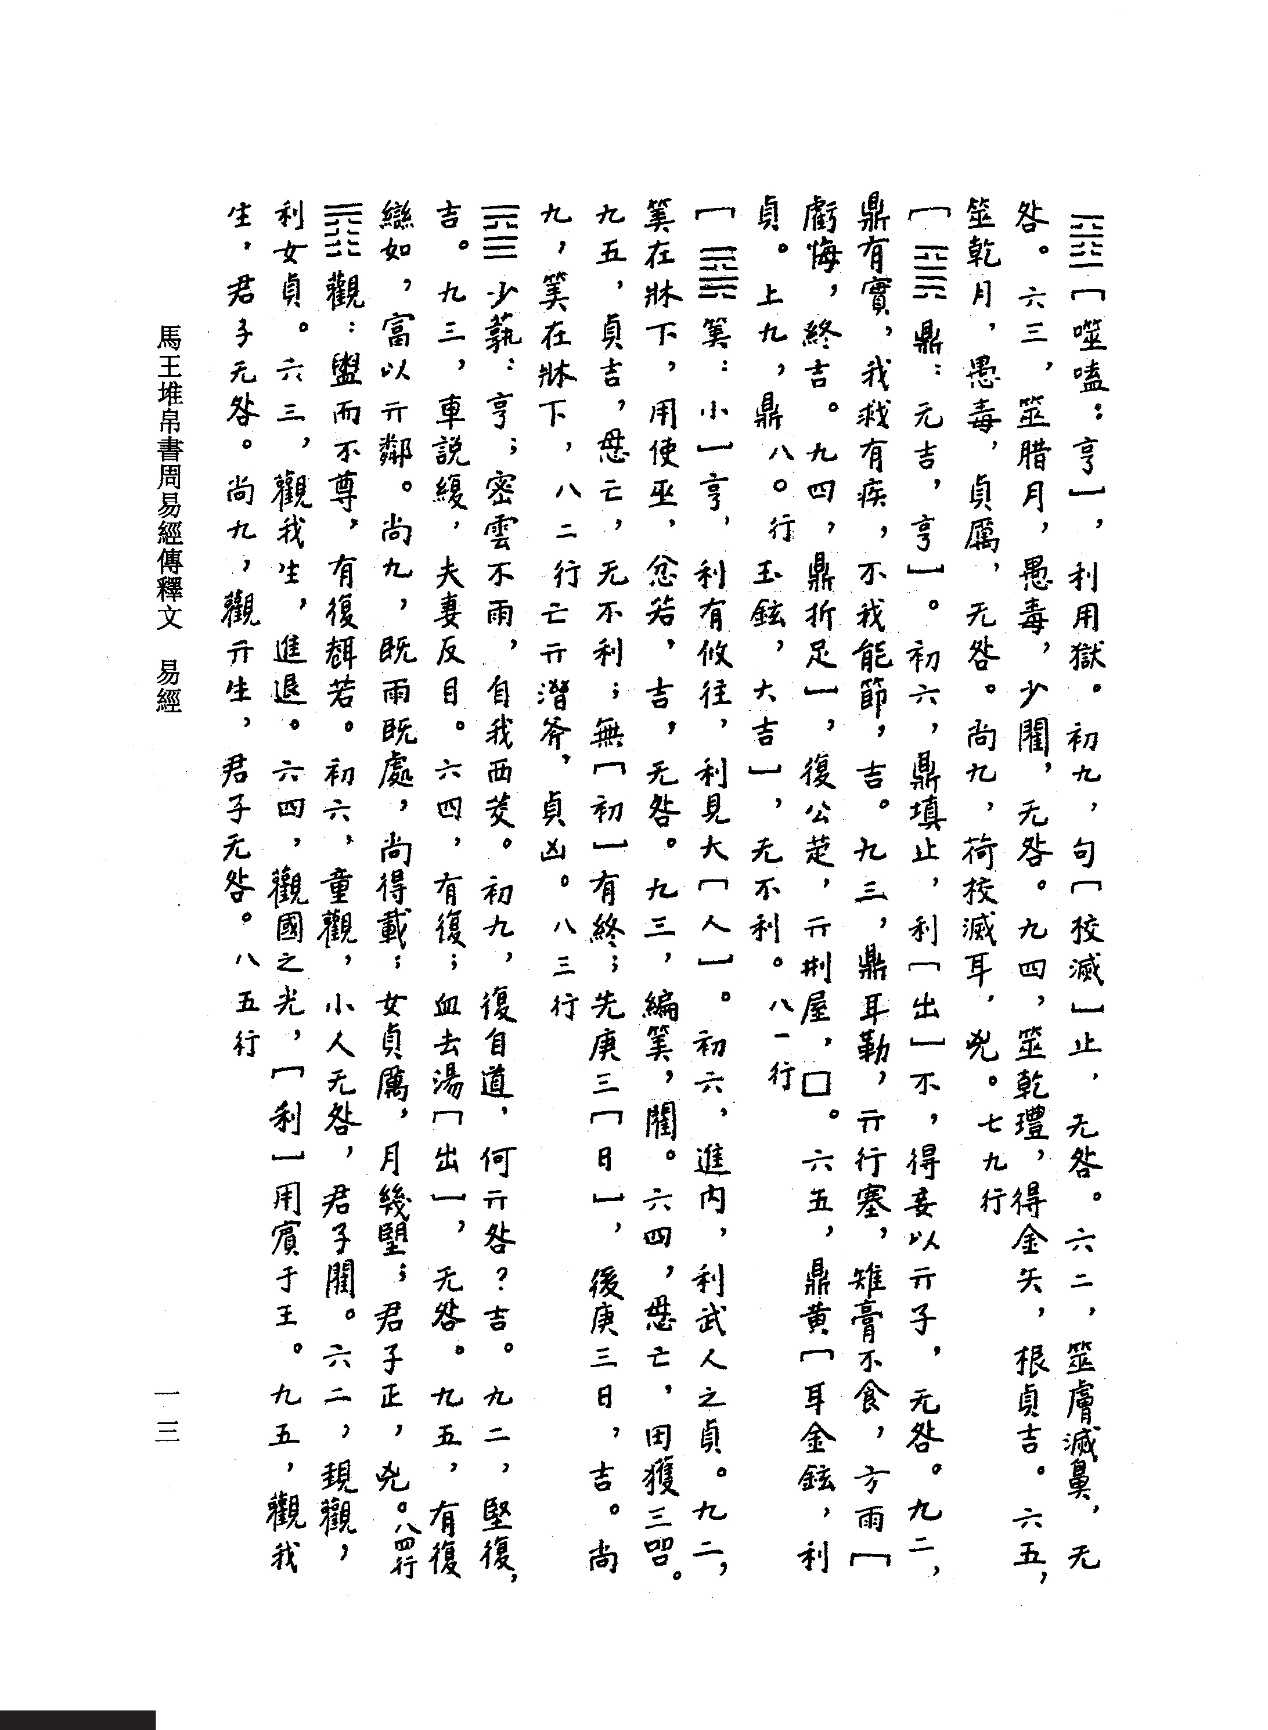 ䷔〔噬嗑：亨〕，利用獄。初九，句〔校滅〕止，无咎。六二，筮膚滅鼻，无
咎。六三，筮腊月，愚毒，少闁，无咎。九四，筮乾瓃，得金矢，根貞吉。六五，
筮乾月，愚毒，貞厲，无咎。尚九，荷校滅耳，兇。七九行
〔䷱鼎：元吉，亨〕。初六，鼎填止，利〔出〕不，得妾以亓子，无咎。九二，
鼎有實，我𢦏有疾，不我能節，吉。九三，鼎耳勒，亓行塞，雉膏不食，方雨〔
虧悔，終吉。九四，鼎折足〕，復公莡，亓刑屋，□。六五，鼎黄〔耳金鉉，利
貞。上九，鼎八〇行玉鉉，大吉〕，无不利。八一行
〔䷸筭：小〕亨，利有攸往，利見大〔人〕。初六，進内，利武人之貞。九二，
筭在牀下，用使巫，忿若，吉，无咎。九三，編筭，閵。六四，悬亡，田獲三品。
九五，貞吉，悬亡，无不利；無〔初〕有終；先庚三〔日〕，後庚三日，吉。尚
九，筭在牀下，八二行亡亓潛斧，貞凶。八三行
䷈少蓺：亨；密雲不雨，自我西茭。初九，復自道，何亓咎？吉。九二，堅復，
吉。九三，車説緮，夫妻反目。六四，有復；血去湯〔出〕，无咎。九五，有復
䜌如，富以亓鄰。尚九，既雨既處，尚得載；女貞厲，月幾朢；君子正，兇。八四行
䷓觀：盥而不尊，有復𩓣若。初六，童觀，小人无咎，君子閵。六二，䙷觀，
利女貞。六三，觀我生，進退。六四，觀國之光，〔利〕用賓于王。九五，觀我
生，君子无咎。尚九，觀亓生，君子无咎。八五行
馬王堆帛書周易經傳釋文　易經
一三